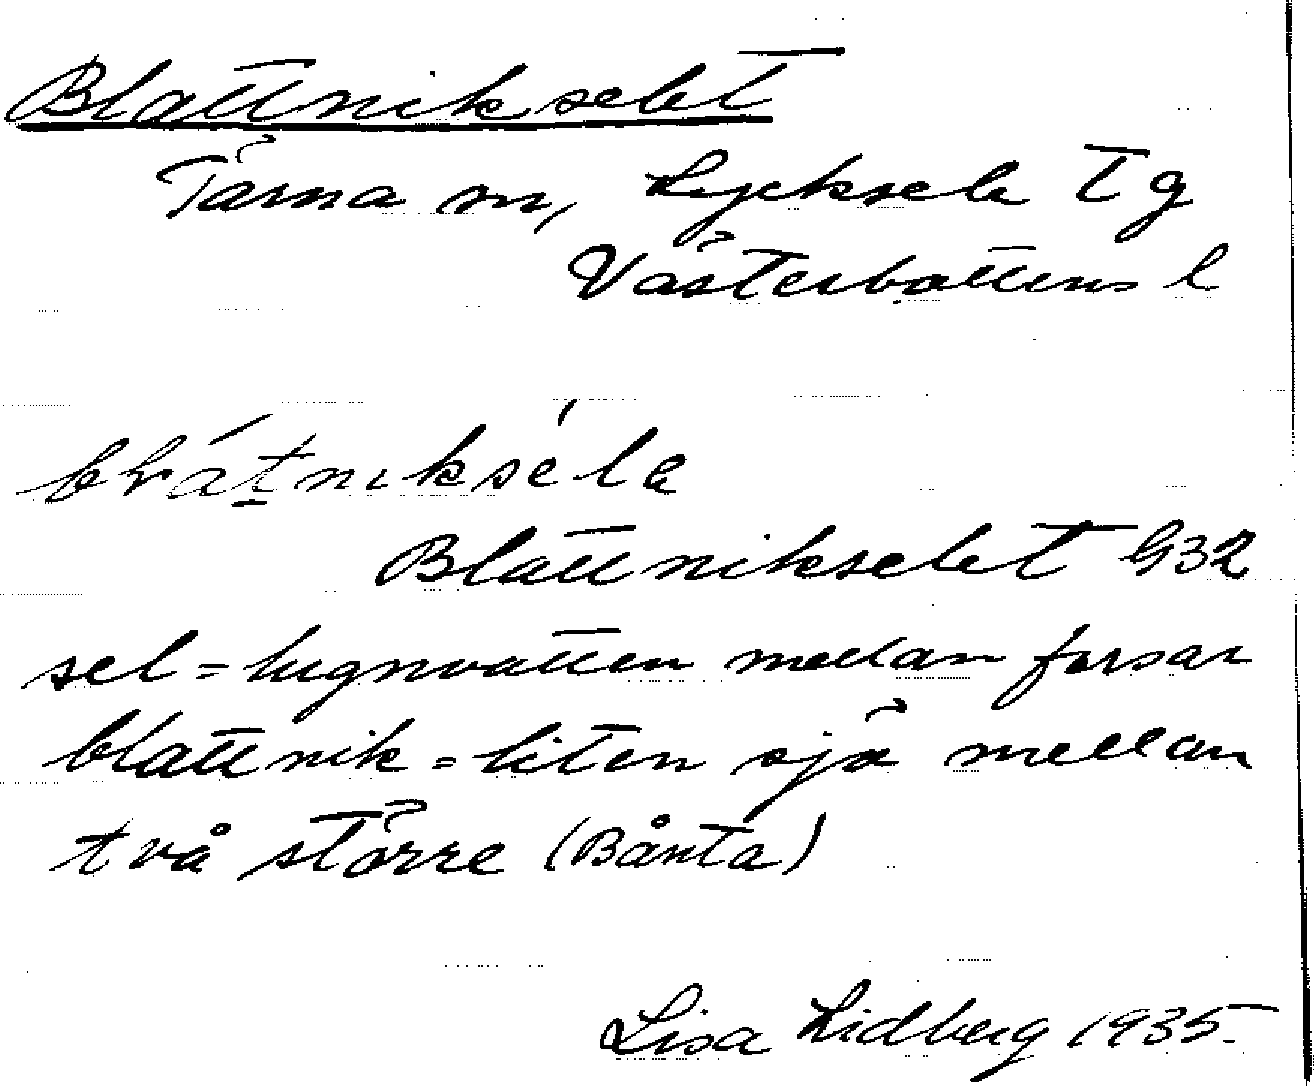 Blattnikselet
Tärna sn, Lycksele Tg
Västerbottens l
blát̠niksé la
Blattnikselet G32
sel = lugnvatten mellan forsar
blattnik = liten sjö mellan
två större (Bånta)
Lisa Lidberg 1935.